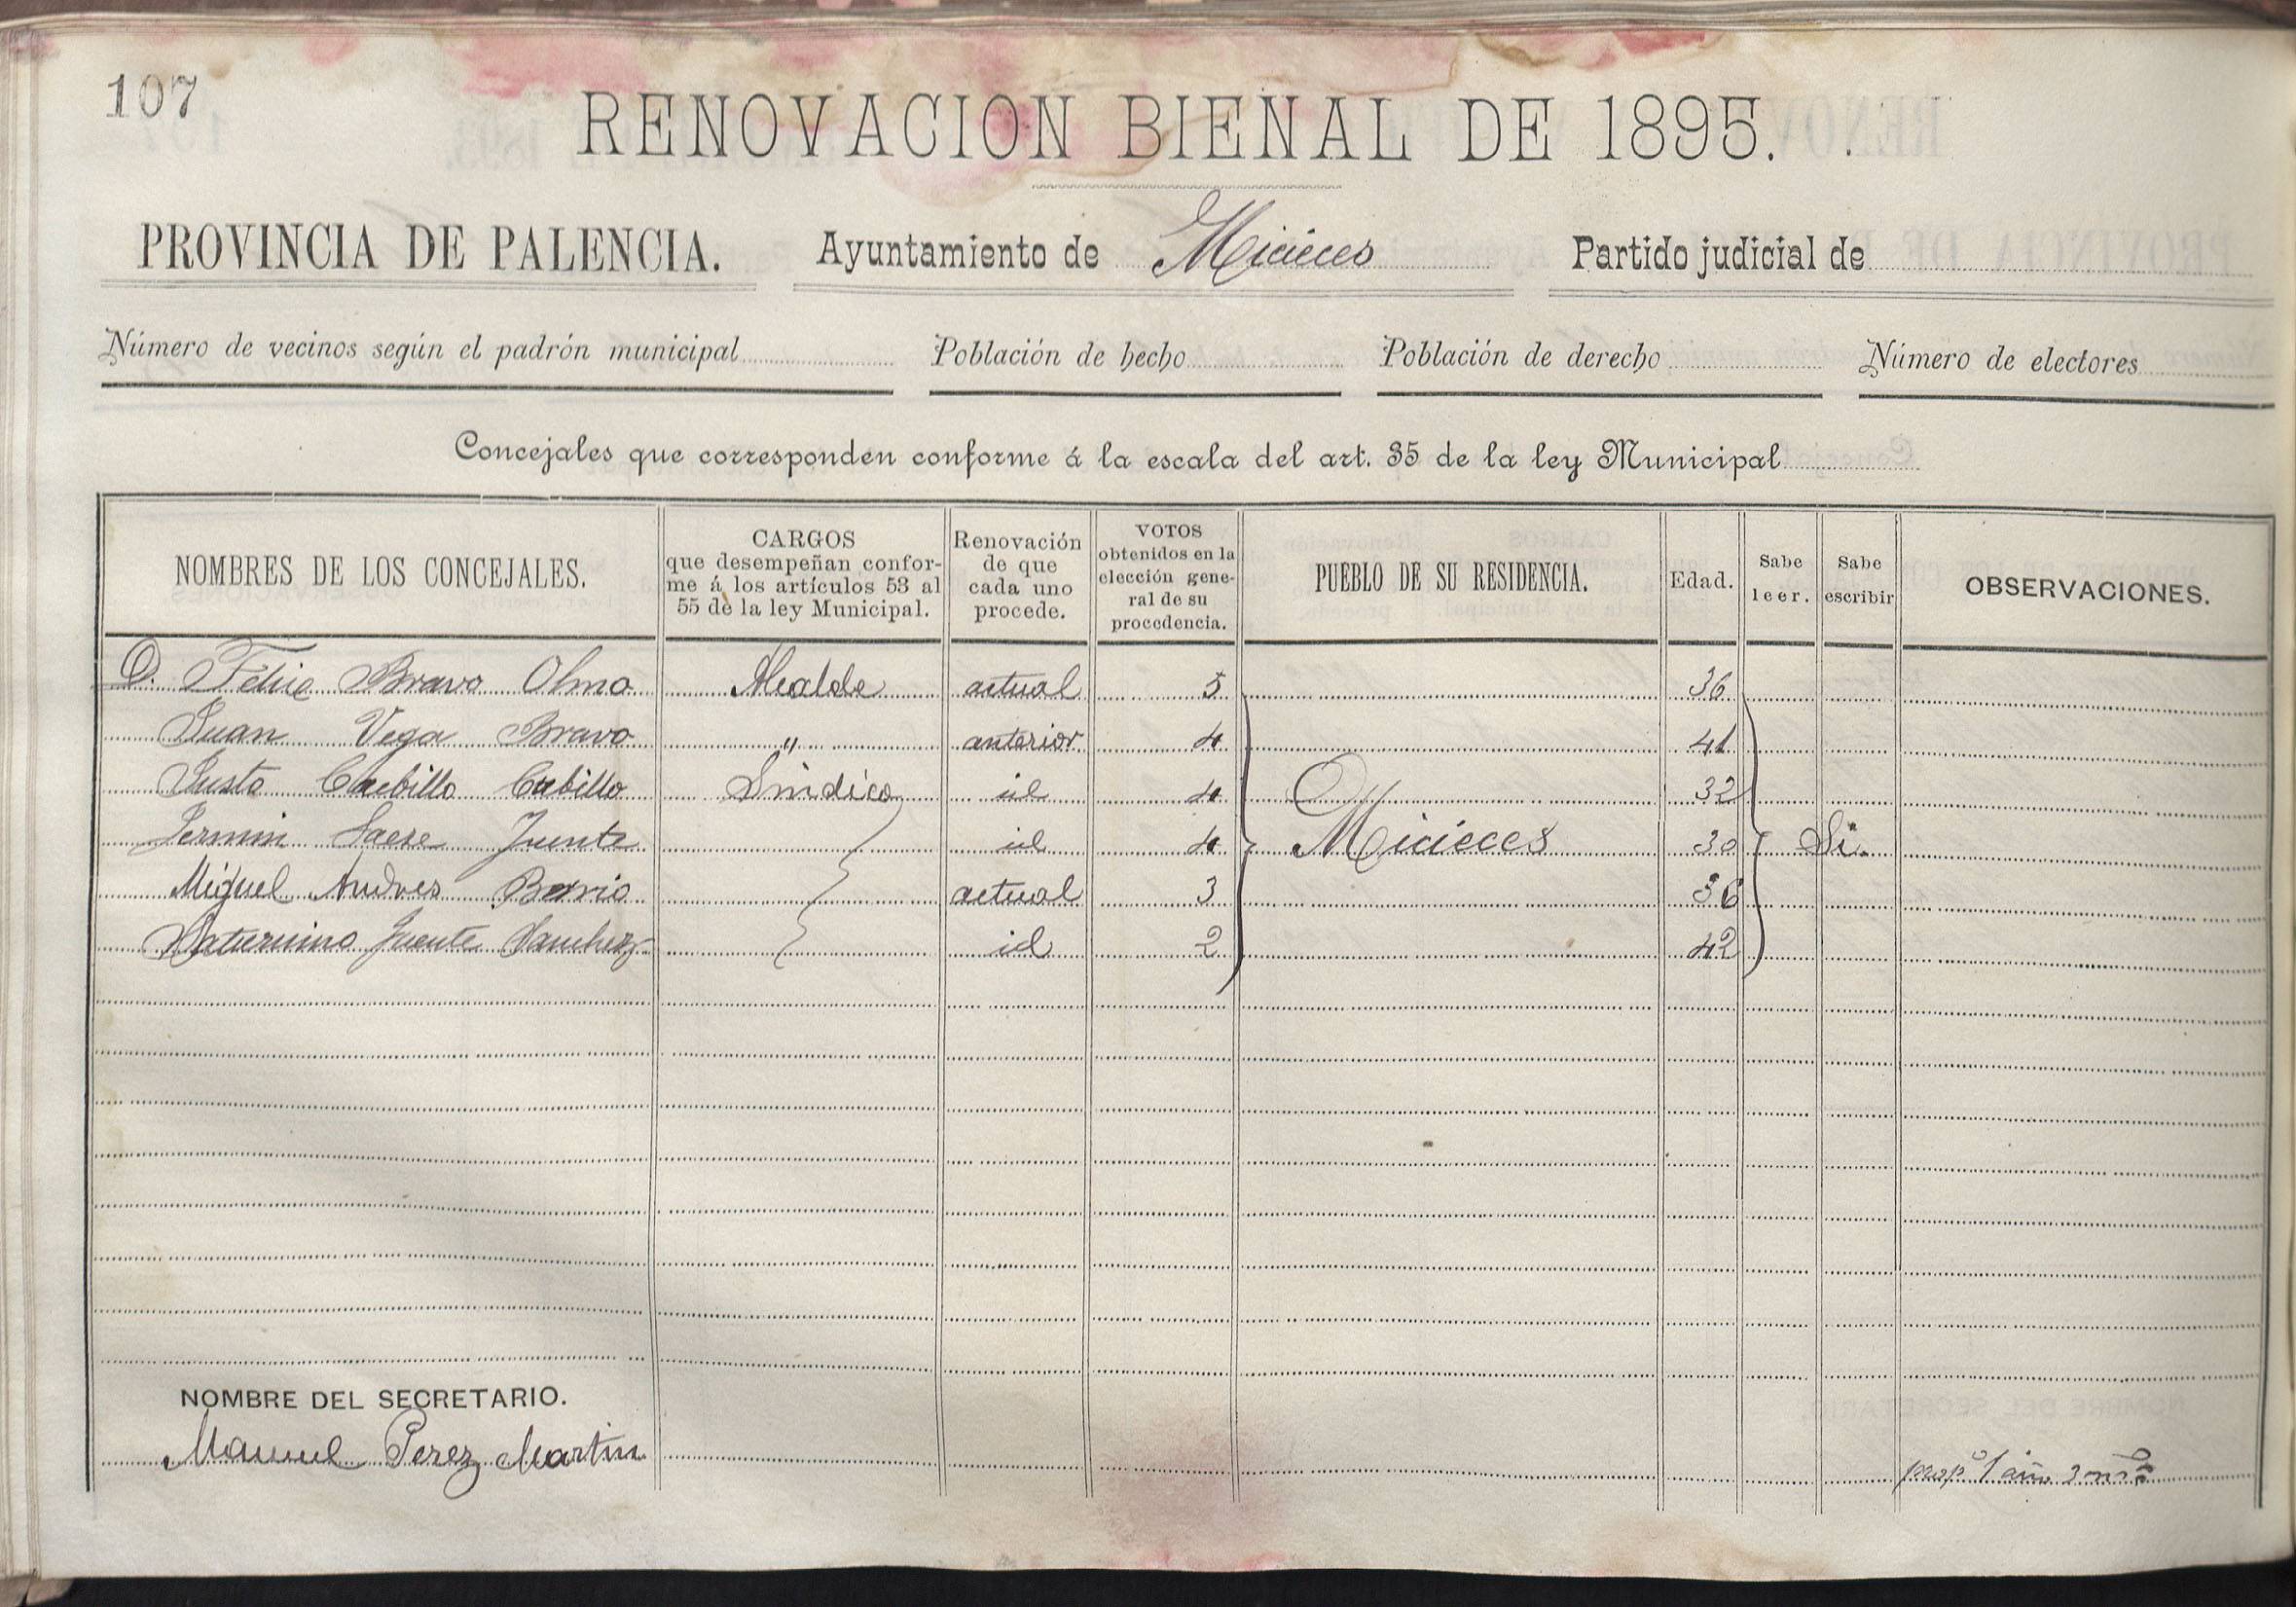 107
RENOVACION BIENAL DE 1895.
PROVINCIA DE PALENCIA. Ayuntamiento de Micieces Partido judicial de
Número de vecinos según el padrón municipal Población de hecho Población de derecho Número de electores
Concejales que corresponden conforme á la escala del art. 35 de la ley Municipal
NOMBRES DE LOS CONCEJALES.
CARGOS
que desempeñan confor-
me á los artículos 53 al
55 de la ley Municipal.
Renovación
de que
cada uno
procede.
VOTOS
obtenidos en la
elección gene-
ral de su
procedencia.
PUEBLO DE SU RESIDENCIA.
Edad.
Sabe
leer.
Sabe
escribir
OBSERVACIONES.
D. Felix Bravo Olmo Alcalde actual 5 36
Juan Vega Bravo " anterior 4 41
Justo Cubillo Cubillo Sindico id 4 32
Fermin Fuente id 4 Micieces 30 Si.
Miguel Andres Berrio actual 3 36
Saturnino Fuente Sanchez id 2 42
NOMBRE DEL SECRETARIO.
Manuel Perez Martin
propº 1 año 3